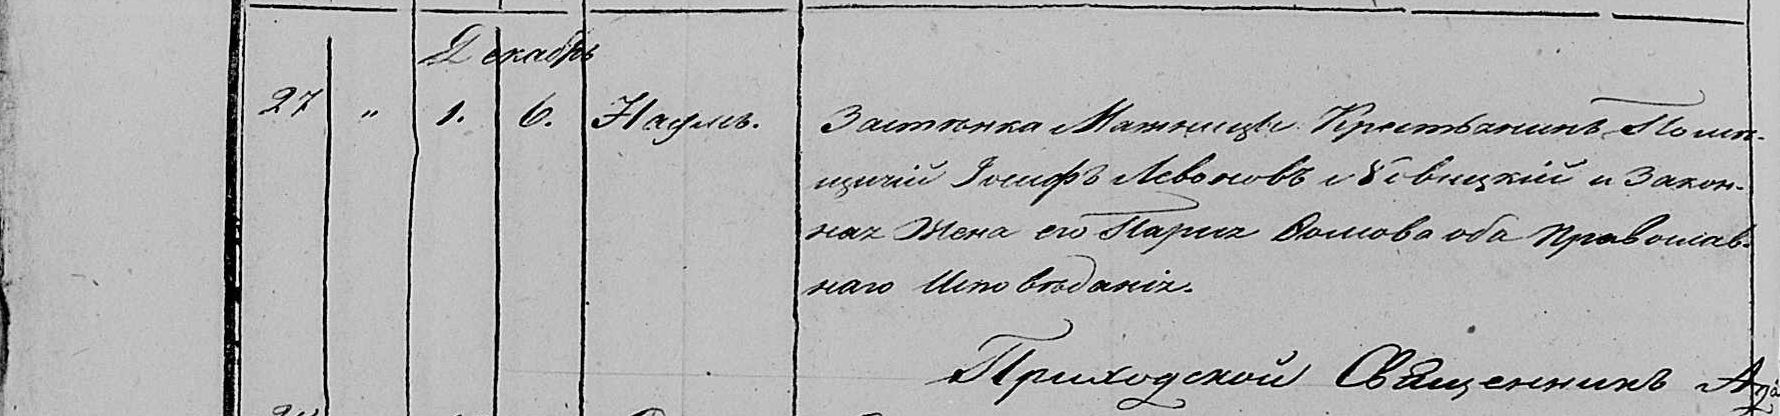 Декабрь
27 " 1. 6. Наумъ. Застѣнка Мажницы Крестьянинъ Помѣ-
щичій Іосифъ Левоновъ и Закон-
ная Жена его Парія Фомова оба Православ-
наго Исповѣданія.
Приходской Священникъ